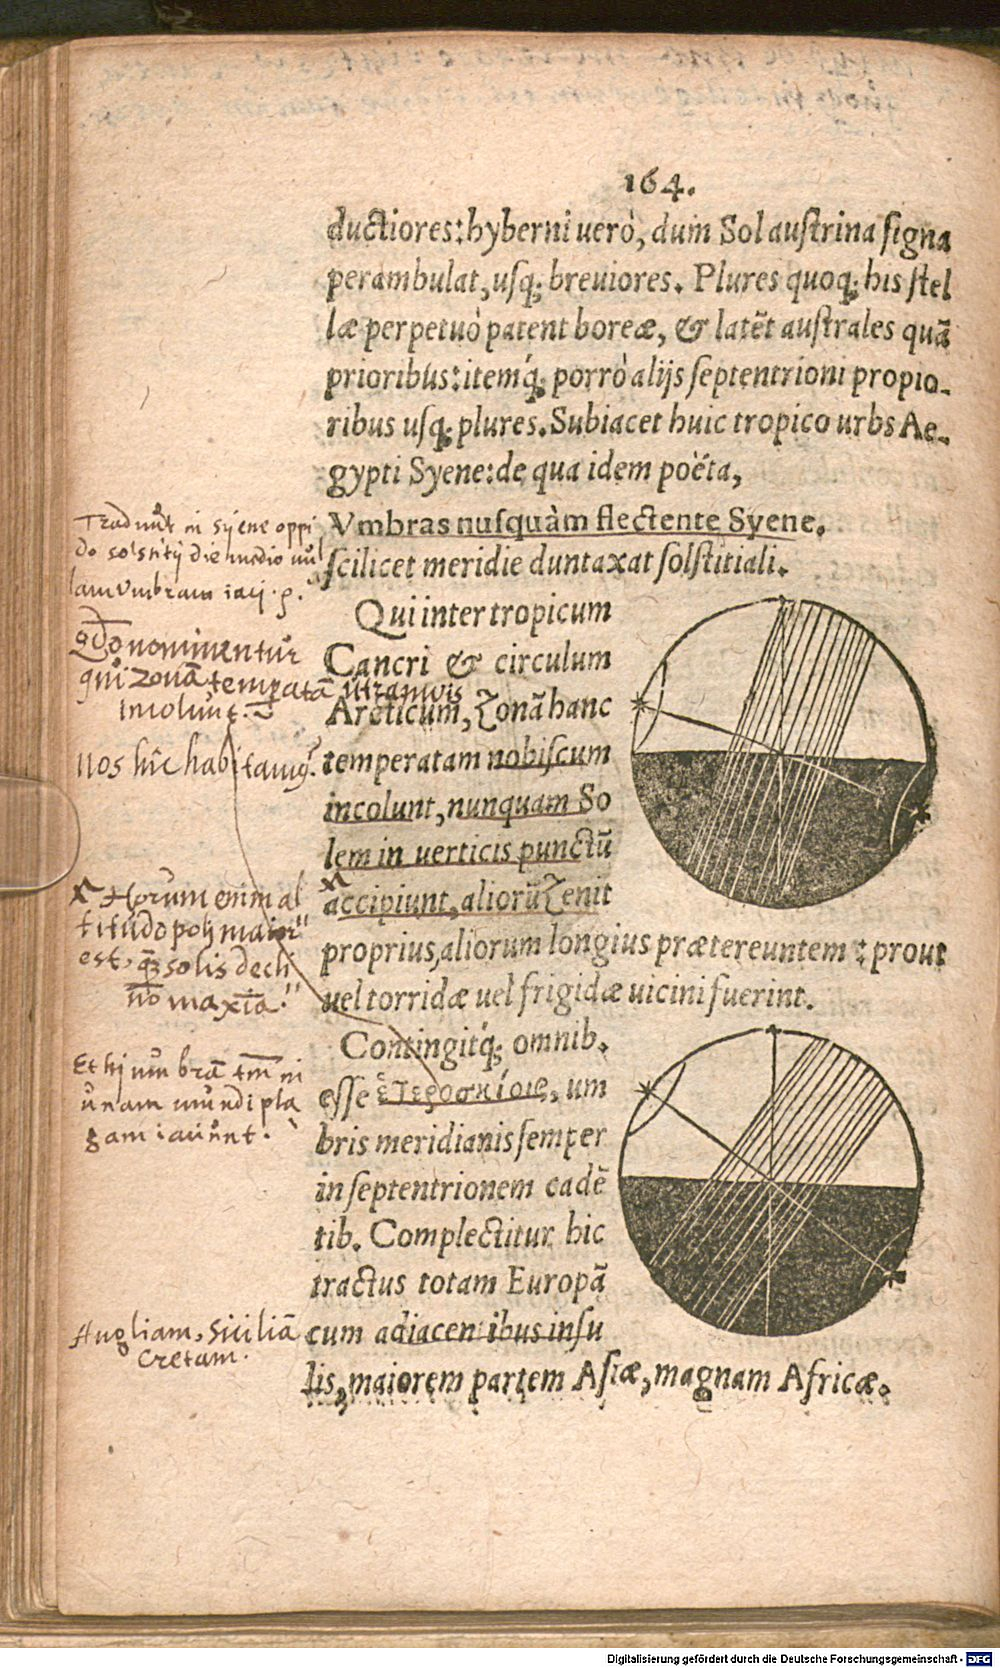 164.
ductiores: hyberni uerò, dum Sol austrina signa
perambulat, usq; breuiores. Plures quoq; his stel
læ perpetuò patent boreæ, & latēt australes quā
prioribus: itemq́; porrò alijs septentrioni propio-
ribus usq; plures. Subiacet huic tropico urbs Ae-
gypti Syene: de qua idem poëta,
Vmbras nusquàm flectente Syene.
scilicet meridie duntaxat solstitiali.
Tradunt in syene oppi
do solstitij die medio nul
lam umbram iaci.
Qui inter tropicum
Cancri & circulum
Arcticum, Zonā hanc
temperatam nobiscum
incolunt, nunquam So
lem in uerticis punctū
accipiunt, aliorū Zenit
proprius, aliorum longius prætereuntem: prout
uel torridæ uel frigidæ uicini fuerint.
Quō nominentur
qui zonā temperatā utramvis
incolunt.
nos hîc habitamus.
Horum enim al
titudo poli maior
est, solis decli
Contingitq́; omnib.
esse ἑτεροσκίοις, um
bris meridianis semper
in septentrionem cadē
tib. Complectitur hic
tractus totam Europā
cum adiacentibus insu
lis, maiorem partem Asiæ, magnam Africæ.
Et hi umbrā tm̄ in
unam mundi pla
gam iaciunt.
Angliam, Siciliā
Cretam.
Digitalisierung gefördert durch die Deutsche Forschungsgemeinschaft - DFG